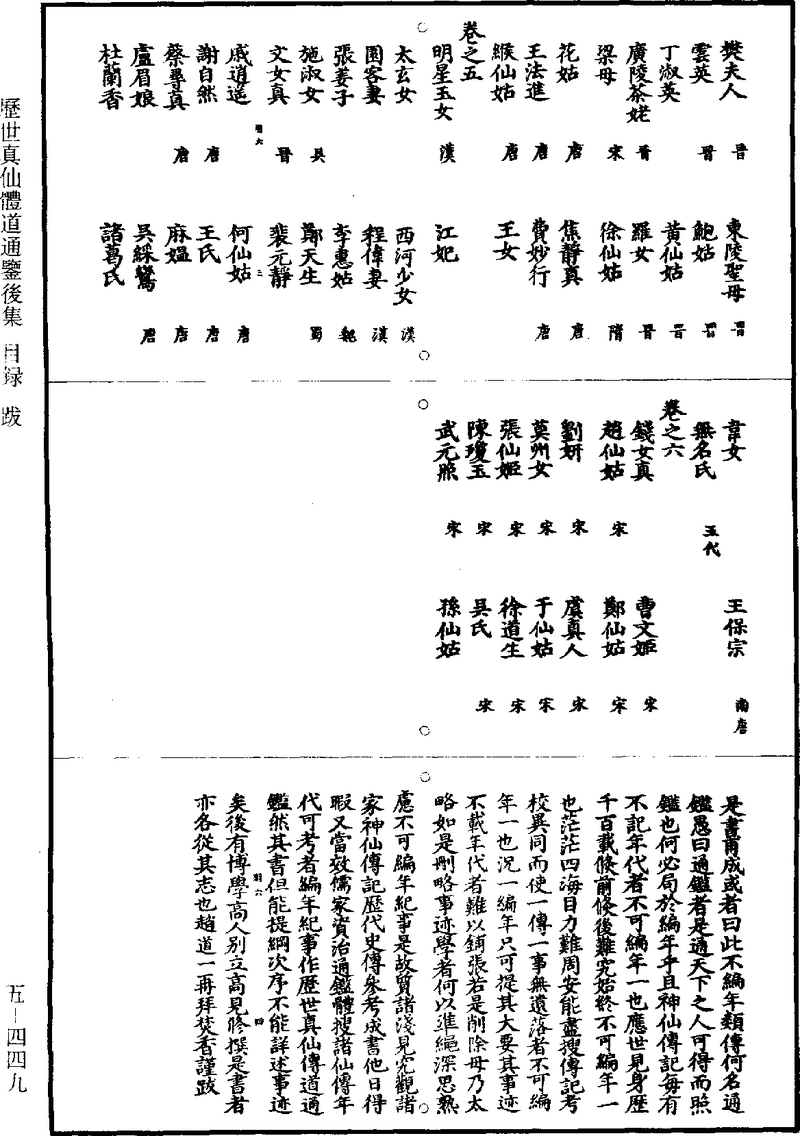 樊夫人 晉 東陵聖母 晉
雲英 鮑姑 晉
丁淑英 晉 黃仙姑 晉
廣陵茶姥 晉 羅女 晉
梁母 宋 徐仙姑 隋
花姑 唐 焦靜真 唐
王法進 唐 費妙行 唐
緱仙姑 唐 王女
卷之五
明星玉女 漢 江妃
太玄女 西河少女 漢
園客妻 程偉妻 漢
張姜子 李惠姑 魏
施淑女 吳 鄭天生 蜀
文女真 晉 裴元靜
戚逍遙 何仙姑 唐
謝自然 唐 王氏 唐
蔡尋真 唐 麻媼 唐
盧眉娘 吳綵鸞 唐
杜蘭香 諸葛氏
韋女 王保宗 南唐
無名氏 五代
卷之六
錢女真 曹文姬 宋
趙仙姑 宋 鄭仙姑 宋
劉妍 宋 虞真人 宋
莫州女 宋 于仙姑 宋
張仙姬 宋 徐道生 宋
陳瓊玉 宋 吳氏 宋
武元照 宋 孫仙姑
是書甫成或者曰此不編年類傳何名通
鑑愚曰通鑑者是通天下之人可得而照
鑑也何必局於編年乎且神仙傳記每有
不記年代者不可編年一也應世見身歷
千百載倏前倏後難究始終不可編年一
也茫茫四海目力難周安能盡搜傳記考
校異同而使一傳一事無遺落者不可編
年一也況一編年只可提其大要其事迹
不載年代者難以鋪張若是削除毋乃太
略如是刪略事迹學者何以進繩深思熟
慮不可編年紀事是故質諸淺見究觀諸
家神仙傳記歷代史傳參考成書他日得
暇又當效儒家資治通鑑體搜諸仙傳年
代可考者編年紀事作歷世真仙傳道通
鑑然其書但能提綱次序不能詳述事迹
矣後有博學高人別立高見修撰是書者
亦各從其志也趙道一再拜焚香謹跋
歷世真仙體道通鑒後集 目録 跋
五－四四九